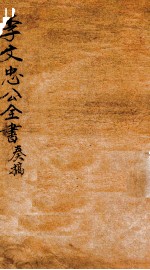 李文忠公全書奏稿